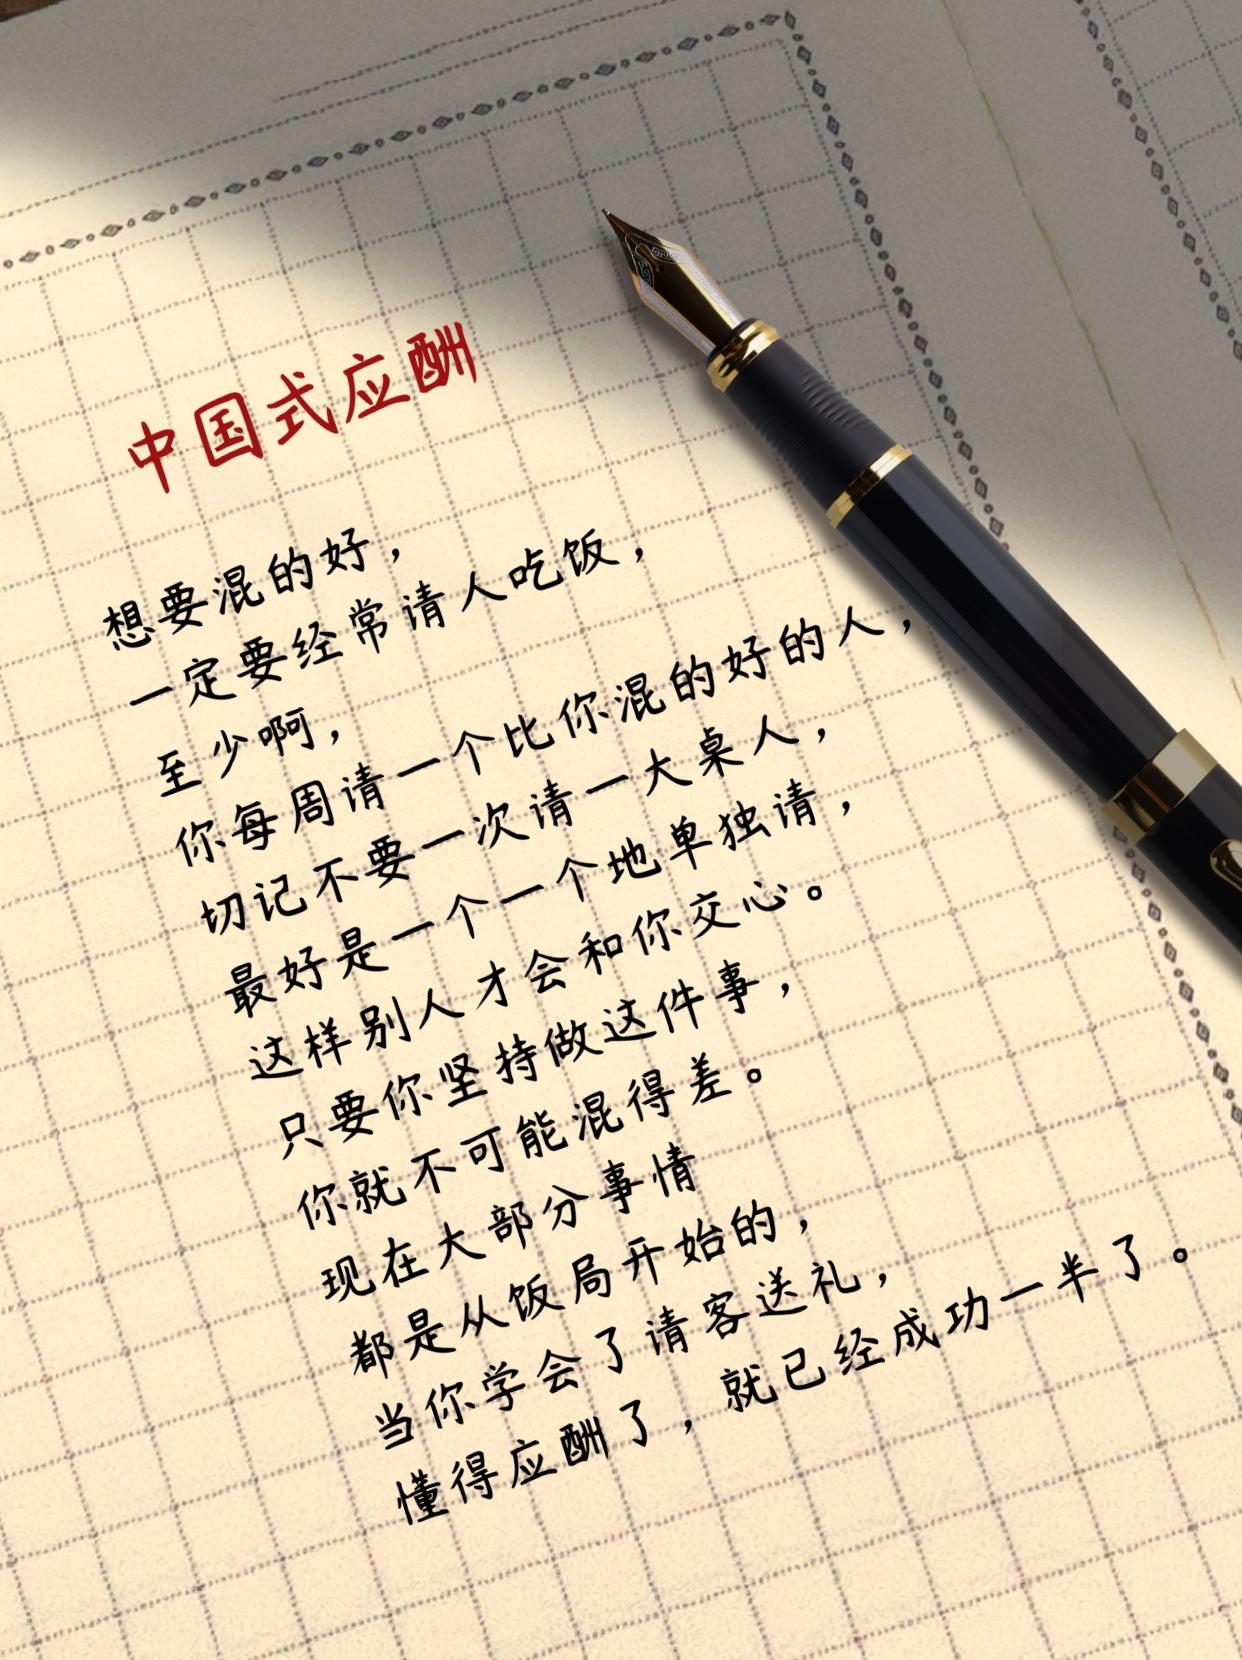 中国式应酬
想要混的好，
一定要经常请人吃饭，
至少啊，
你每周请一个比你混的好的人，
切记不要一次请一大桌人，
最好是一个一个地单独请，
这样别人才会和你交心。
只要你坚持做这件事，
你就不可能混得差。
现在大部分事情
都是从饭局开始的，
当你学会了请客送礼，
懂得应酬了，就已经成功一半了。